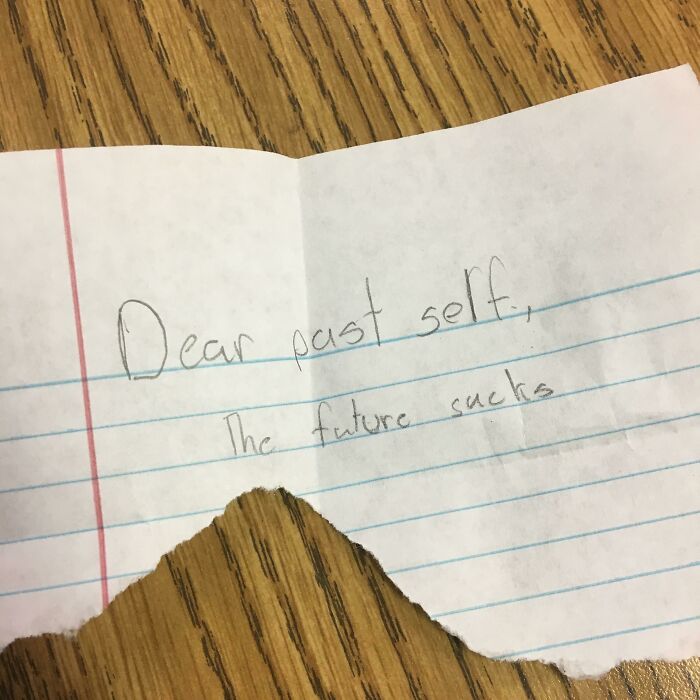 Dear past self,
The future sucks